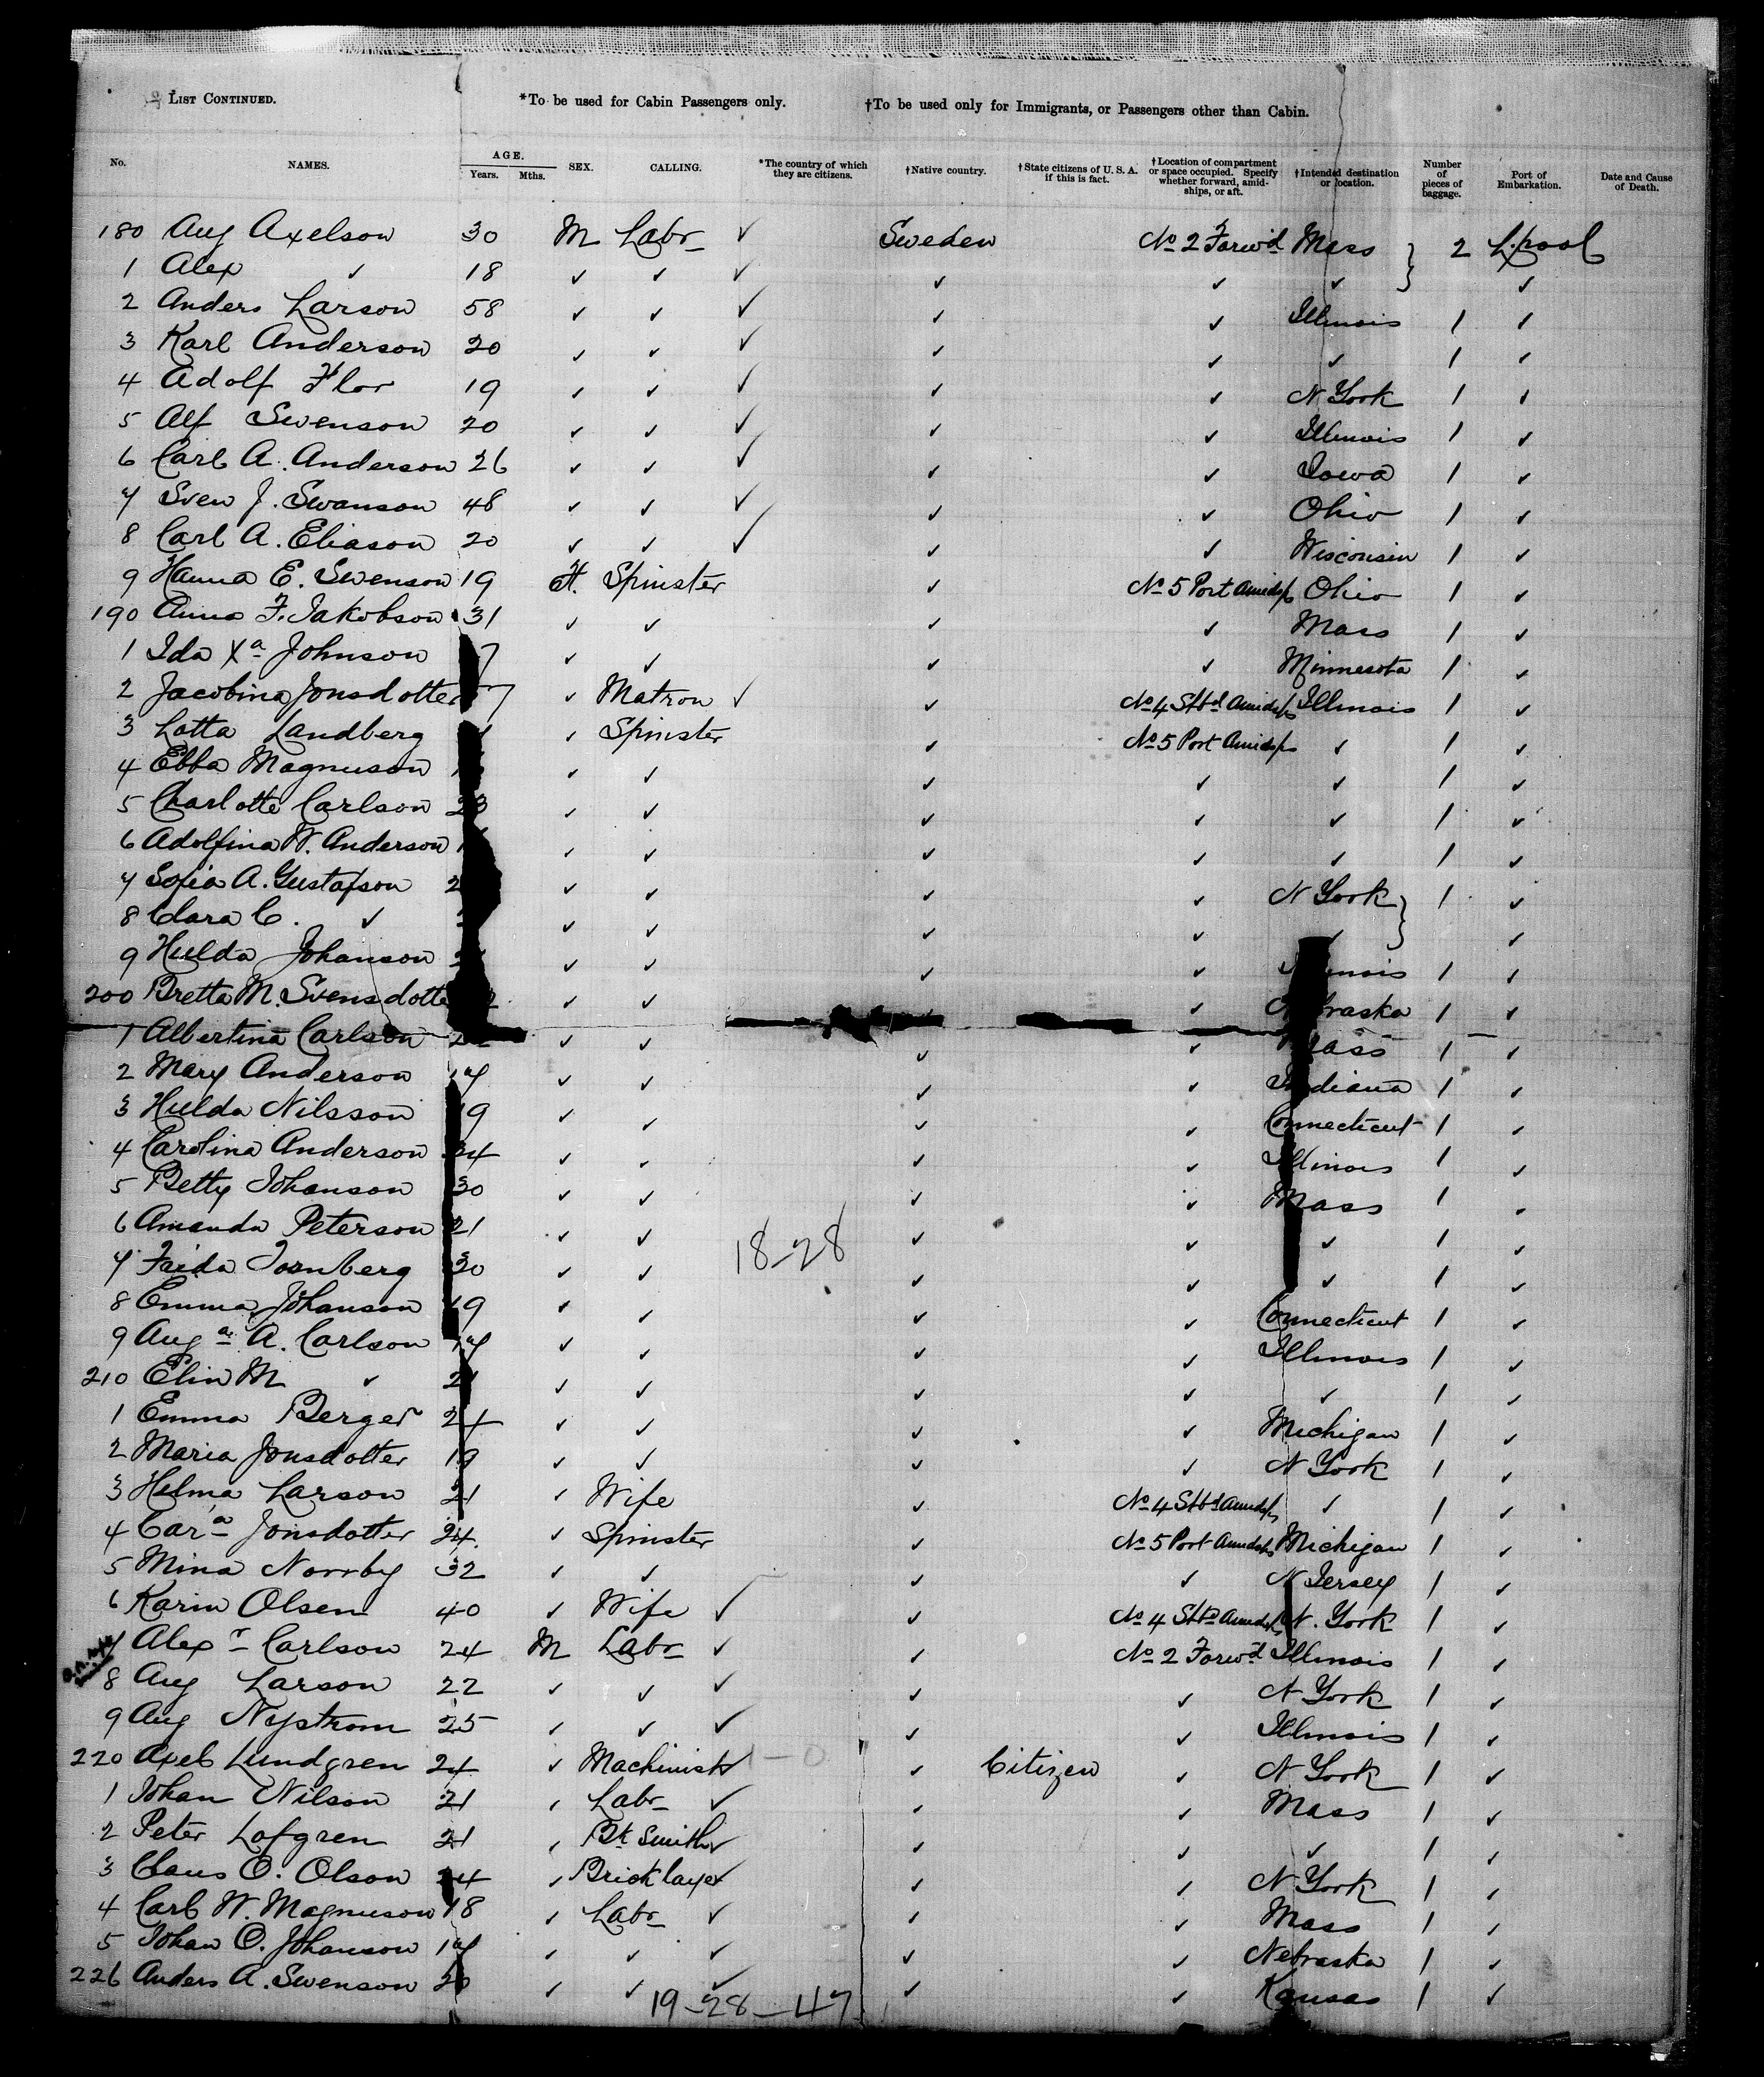 LIST CONTINUED.
*To be used for Cabin Passengers only.
†To be used only for Immigrants, or Passengers other than Cabin.
No. NAMES. AGE. Years. Mths. SEX. CALLING. *The country of which they are citizens. †Native country. †State citizens of U. S. A. if this is fact. †Location of compartment or space occupied. Specify whether forward, amidships, or aft. †Intended destination or location. Number of pieces of baggage. Port of Embarkation. Date and Cause of Death.
180 Aug Axelson 30 M Labr ✓ Sweden No 2 Forwd Mass } 2 L.pool
1 Alex ✓ 18 ✓ ✓ ✓ ✓ ✓ ✓ ✓
2 Anders Larson 58 ✓ ✓ ✓ ✓ ✓ Illinois 1 ✓
3 Karl Anderson 20 ✓ ✓ ✓ ✓ ✓ ✓ 1 ✓
4 Adolf Flor 19 ✓ ✓ ✓ ✓ ✓ N York 1 ✓
5 Alf Swenson 20 ✓ ✓ ✓ ✓ ✓ Illinois 1 ✓
6 Carl A. Anderson 26 ✓ ✓ ✓ ✓ ✓ Iowa 1 ✓
7 Sven J. Swanson 48 ✓ ✓ ✓ ✓ ✓ Ohio 1 ✓
8 Carl A. Eliason 20 ✓ ✓ ✓ ✓ ✓ Wisconsin 1 ✓
9 Hanna E. Swenson 19 F. Spinster ✓ No 5 Port Amidsps Ohio 1 ✓
190 Anna F. Jakobson 31 ✓ ✓ ✓ ✓ Mass 1 ✓
1 Ida Xa Johnson 7 ✓ ✓ ✓ ✓ Minnesota 1 ✓
2 Jacobina Jonsdotter 7 ✓ Matron ✓ ✓ No 4 Stbd Amidsps Illinois 1 ✓
3 Lotta Landberg ✓ Spinster ✓ No 5 Port Amidsps ✓ 1 ✓
4 Ebba Magnuson ✓ ✓ ✓ ✓ ✓ 1 ✓
5 Charlotte Carlson 23 ✓ ✓ ✓ ✓ ✓ 1 ✓
6 Adolfina W. Anderson ✓ ✓ ✓ ✓ ✓ 1 ✓
7 Sofia A. Gustafson 2 ✓ ✓ ✓ ✓ N York } 1 ✓
8 Clara C. ✓ ✓ ✓ ✓ ✓ ✓ ✓
9 Hulda Johanson ✓ ✓ ✓ ✓ Illinois 1 ✓
200 Bretta M. Svensdotte ✓ ✓ ✓ ✓ Nebraska 1 ✓
1 Albertina Carlson ✓ ✓ ✓ ✓ Mass 1 ✓
2 Mary Anderson 17 ✓ ✓ ✓ ✓ Indiana 1 ✓
3 Hulda Nilsson 19 ✓ ✓ ✓ ✓ Connecticut 1 ✓
4 Carolina Anderson 24 ✓ ✓ ✓ ✓ Illinois 1 ✓
5 Betty Johanson 30 ✓ ✓ ✓ ✓ Mass 1 ✓
6 Amanda Peterson 21 ✓ ✓ ✓ ✓ ✓ 1 ✓
18-28
7 Faida Tornberg 20 ✓ ✓ ✓ ✓ ✓ 1 ✓
8 Emma Johanson 19 ✓ ✓ ✓ ✓ Connecticut 1 ✓
9 Auga A. Carlson 17 ✓ ✓ ✓ ✓ Illinois 1 ✓
210 Elin M ✓ 21 ✓ ✓ ✓ ✓ ✓ 1 ✓
1 Emma Berger 24 ✓ ✓ ✓ ✓ Michigan 1 ✓
2 Maria Jonsdotter 19 ✓ ✓ ✓ ✓ N York 1 ✓
3 Helma Larson 21 ✓ Wife ✓ No 4 Stbd Amidsps ✓ 1 ✓
4 Cara Jonsdotter 24 ✓ Spinster ✓ No 5 Port Amidsps Michigan 1 ✓
5 Mina Norrby 32 ✓ ✓ ✓ ✓ N Jersey 1 ✓
6 Karin Olsen 40 ✓ Wife ✓ ✓ No 4 Stbd Amidsps N. York 1 ✓
7 Alexr Carlson 24 M Labr ✓ ✓ No 2 Forwd Illinois 1 ✓
8 Aug Larson 22 ✓ ✓ ✓ ✓ ✓ N York 1 ✓
9 Aug Nystrom 25 ✓ ✓ ✓ ✓ ✓ Illinois 1 ✓
220 Axel Lundgren 24 ✓ Machinist ✓ 1-0 ✓ Citizen ✓ N York 1 ✓
1 Johan Nilson 21 ✓ Labr ✓ ✓ ✓ Mass 1 ✓
2 Peter Lofgren 21 ✓ Bk Smith ✓ ✓ ✓ ✓ 1 ✓
3 Claus O. Olson 24 ✓ Bricklayer ✓ ✓ ✓ N York 1 ✓
4 Carl W. Magnuson 18 ✓ Labr ✓ ✓ ✓ Mass 1 ✓
5 Johan O. Johanson 17 ✓ ✓ ✓ ✓ ✓ Nebraska 1 ✓
226 Anders A. Swenson 20 ✓ ✓ ✓ ✓ ✓ Kansas 1 ✓
19-28-47